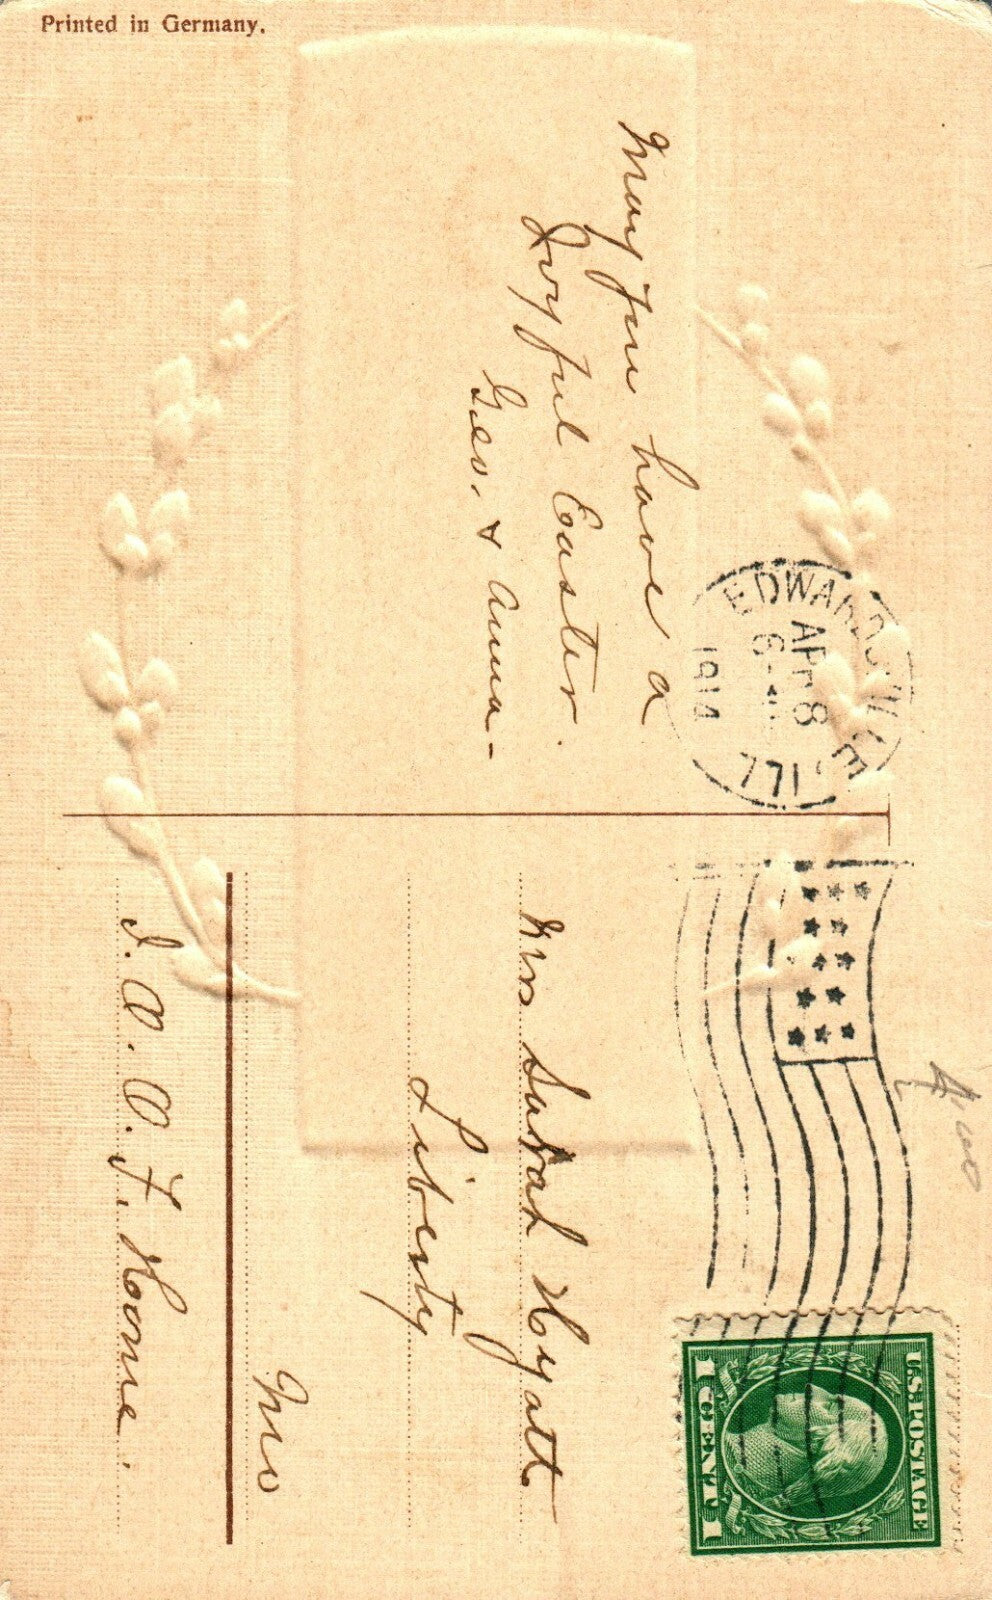 Printed in Germany.
May you have a
Joyful Easter.
Geo. & Anna -
EDWARDSVILLE
APR 8
1914
ILL.
U.S. POSTAGE
1 CENT 1
Mrs Sarah Hyatt
Liberty
Mo
I. O. O. F. Home.